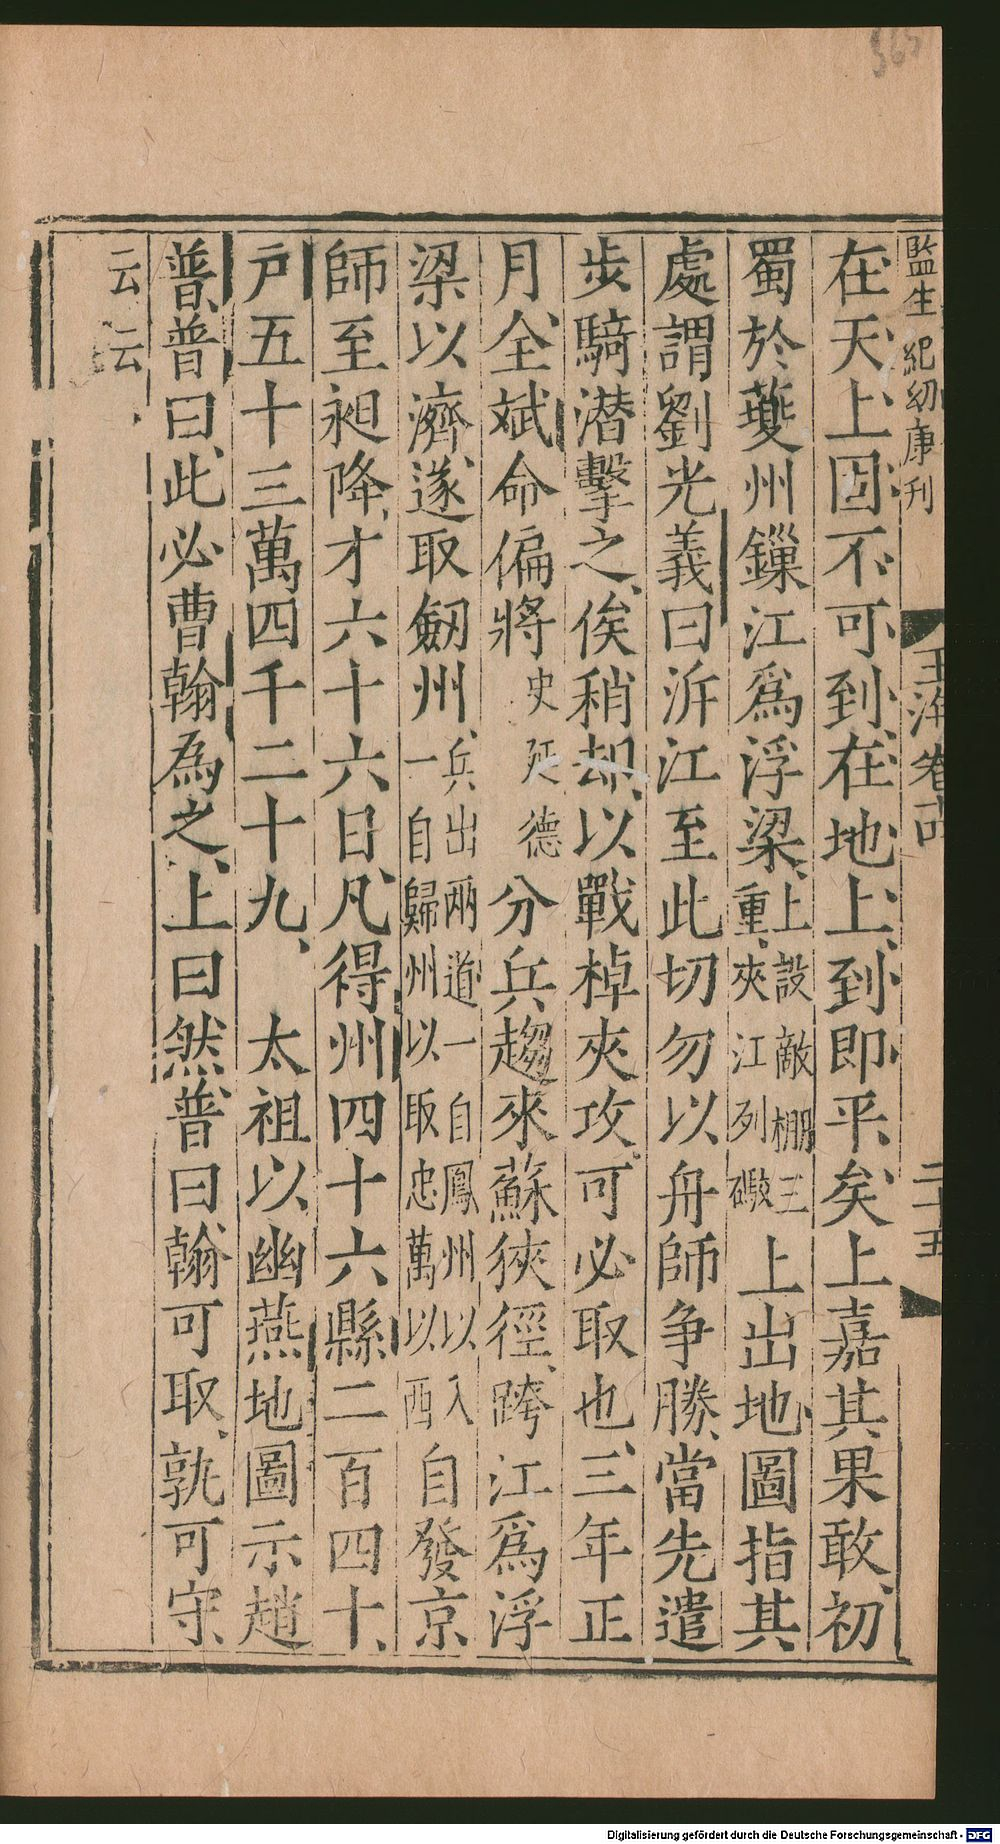 監生紀幼庸刊
玉海卷十四
二十五
在天上固不可到在地上到即平矣上嘉其果敢初
蜀於夔州鏁江爲浮梁上設敵棚三重夾江列礮上出地圖指其
處謂劉光義曰泝江至此切勿以舟師争勝當先遣
步騎潜擊之俟稍却以戰棹夾攻可必取也三年正
月全斌命偏將史延德分兵趨來蘇狹徑跨江爲浮
梁以濟遂取劒州兵出兩道一自鳳州以入一自歸州以取忠萬以西自發京
師至昶降才六十六日凡得州四十六縣二百四十
戸五十三萬四千二十九　太祖以幽燕地圖示趙
普普曰此必曹翰為之上曰然普曰翰可取孰可守
云云
365
Digitalisierung gefördert durch die Deutsche Forschungsgemeinschaft - DFG